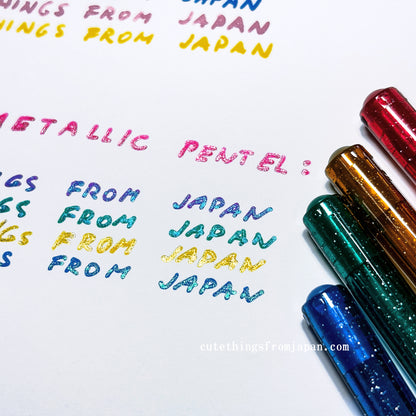 THINGS FROM JAPAN
THINGS FROM JAPAN
METALLIC PENTEL:
NGS FROM JAPAN
NGS FROM JAPAN
NGS FROM JAPAN
S FROM JAPAN
cutethingsfromjapan.com